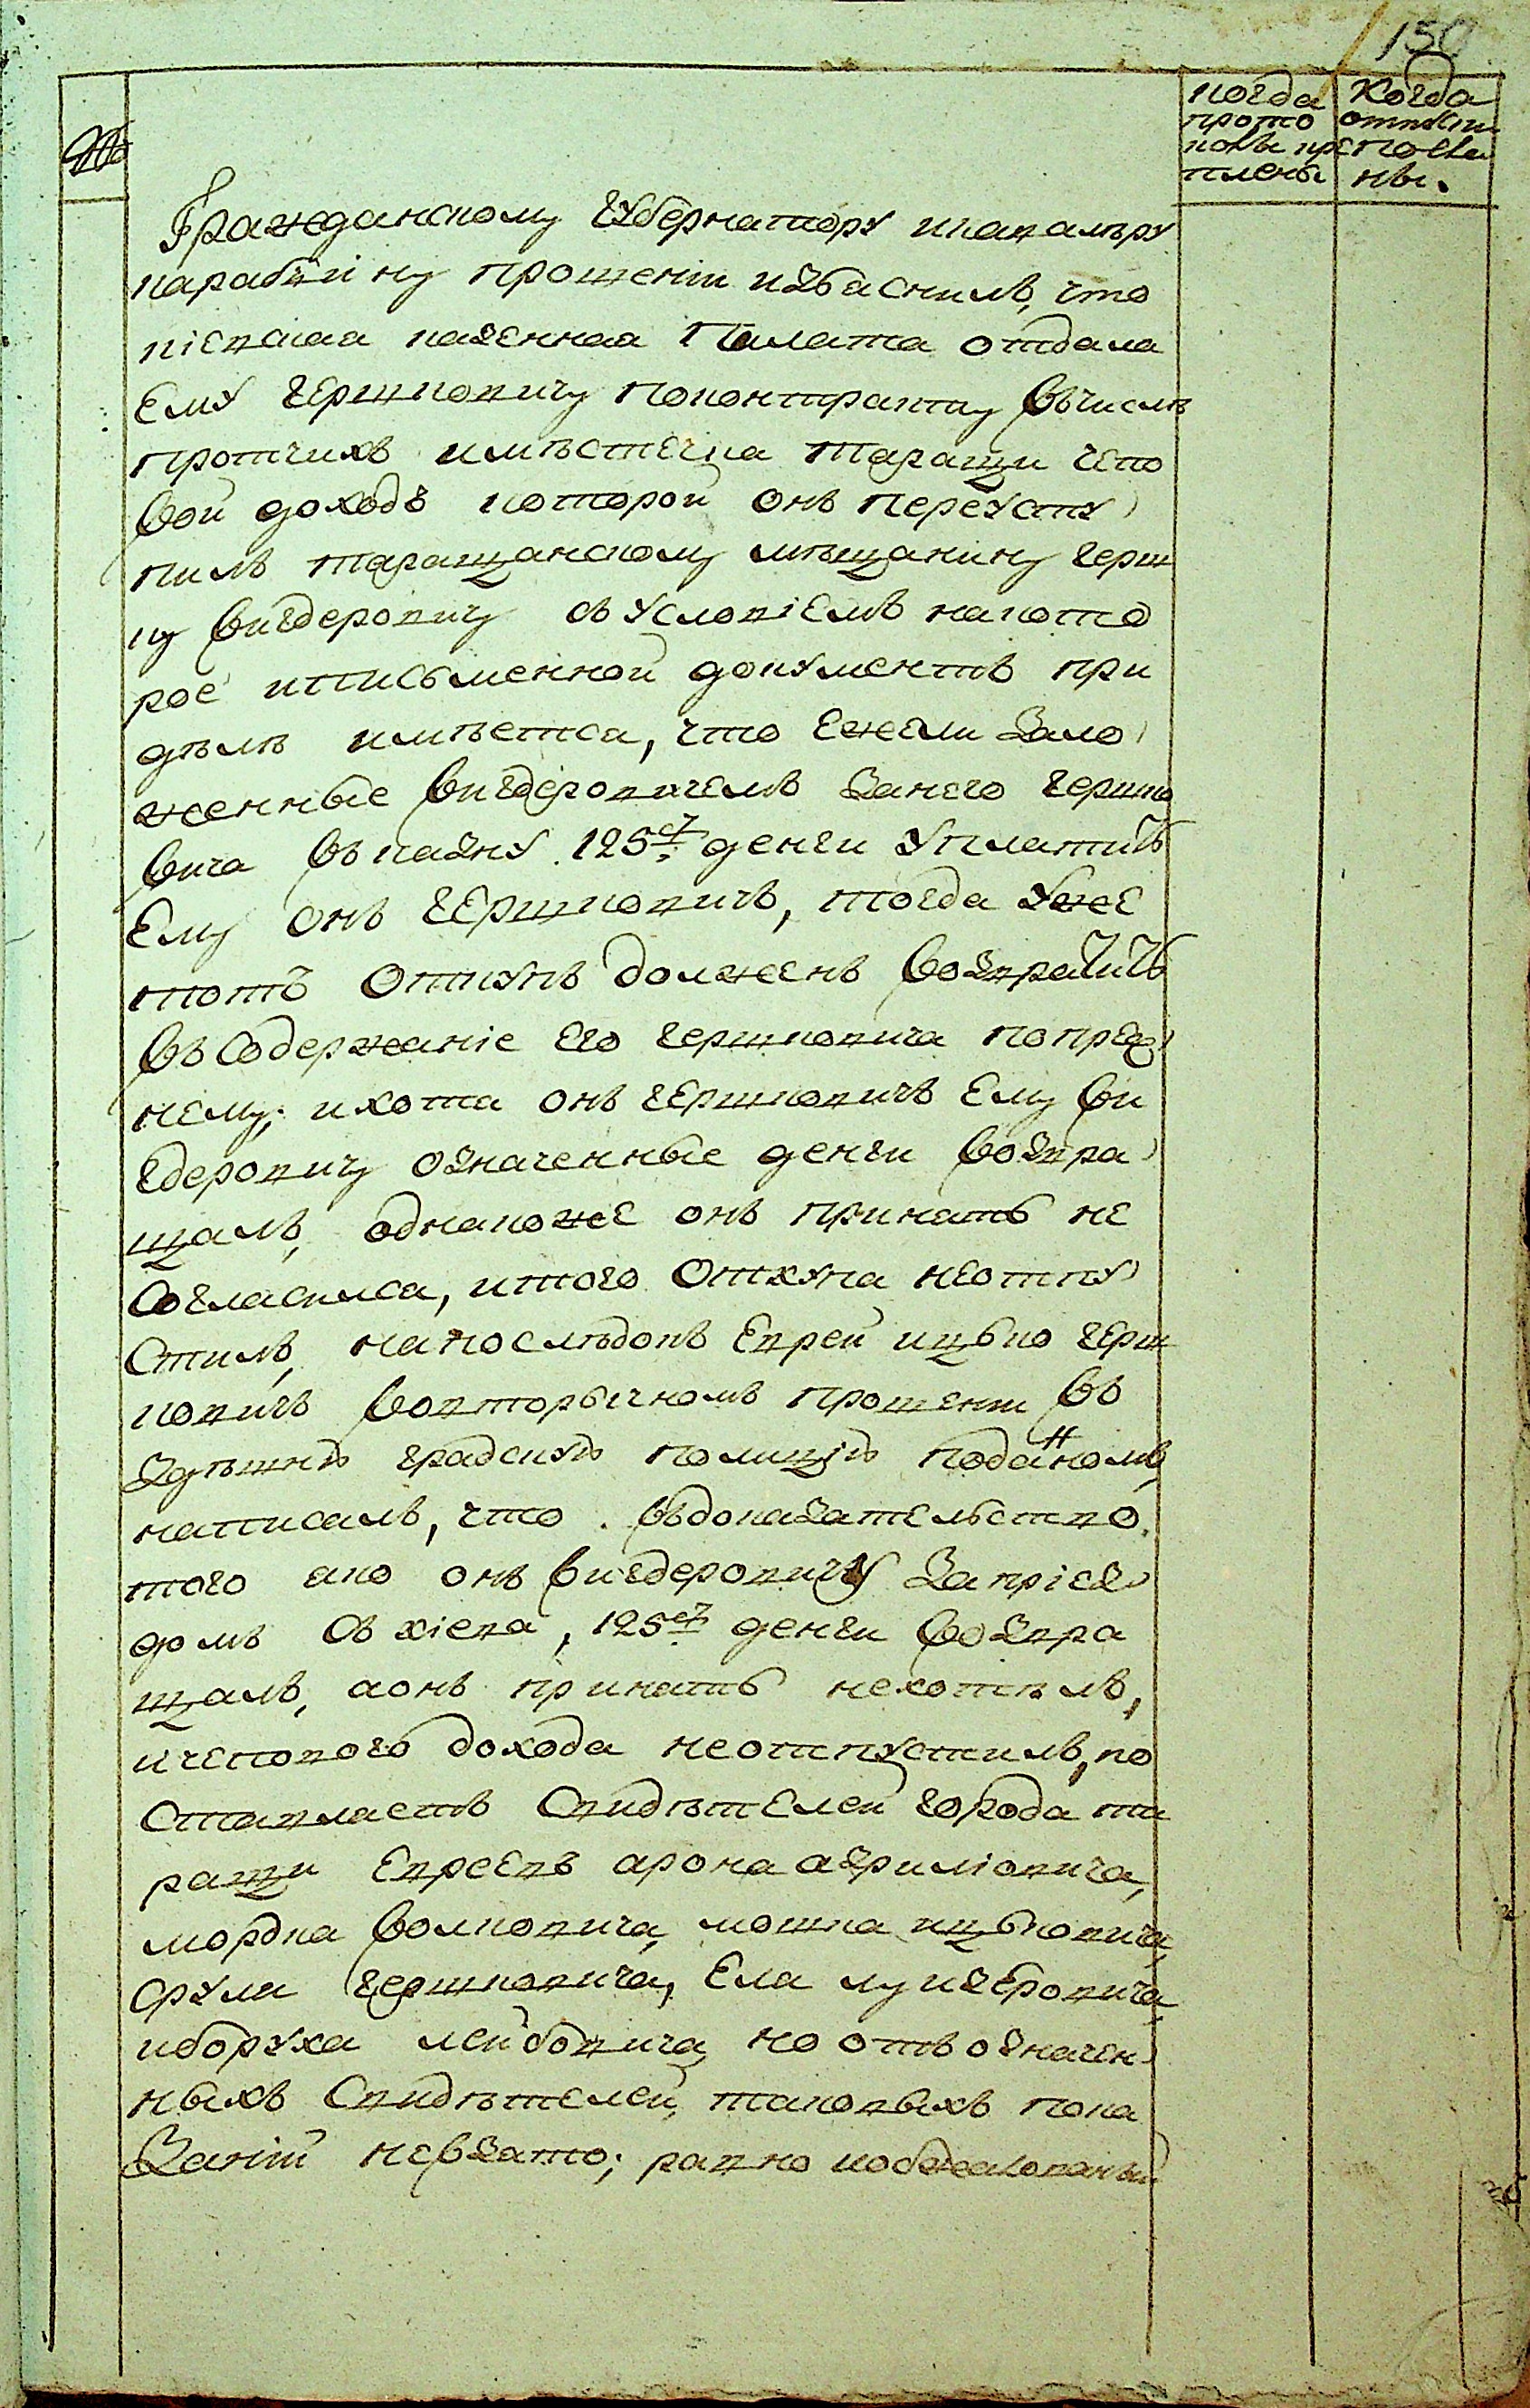 150
№
когда прото колы кре плены
Когда отпуски посла ны.
Гражданскому губернатору икавалѣру
карабѣину прошеніи изьаснилъ, что
кіевскаа казеннаа Палата отдала
Ему гершковичу поконтракту въчислѣ
протчихъ имѣстечка таращи чепо
вой доходъ которой онъ переусту
пилъ таращанскому мѣщанину герш
ку вигдеровичу съ условіемъ накото
рое иписьменной документъ при
дѣлѣ имѣетса, что Ежели Зало
женные вигдеровичемъ Занего гершко
вича въ казну 125 денги уплатитъ
Ему онъ гершковичъ, тогда уже
тотъ откупъ долженъ возвратить
въ содержаніе Его гершковича попреж
нему; ихота онъ гершковичъ Ему ви
гдеровичу означенные денги возвра
щалъ, однакоже онъ принать не
согласилса, итого откупа неотпу
стилъ, напослѣдокъ Еврей ицько герш
ковичъ вовторычномъ прошении въ
здѣшню градскую полицію поданномъ,
написалъ, что въдоказательство
того ако онъ вигдеровичу Запріез
домъ съ кіева, 125 денги возвра
щалъ, аонъ принать нехотѣлъ,
ичепового дохода неотпустилъ, по
ставлаетъ свидѣтелей города та
ращи Евреевъ арона азриліовича,
мордка волковича, мошка ицьковича,
срули гершковича, Ела лузеровича,
иборуха лейбовича, но отъ означен
ныхъ свидѣтелей, таковыхъ пока
Заній невзато; равно иобжалованный